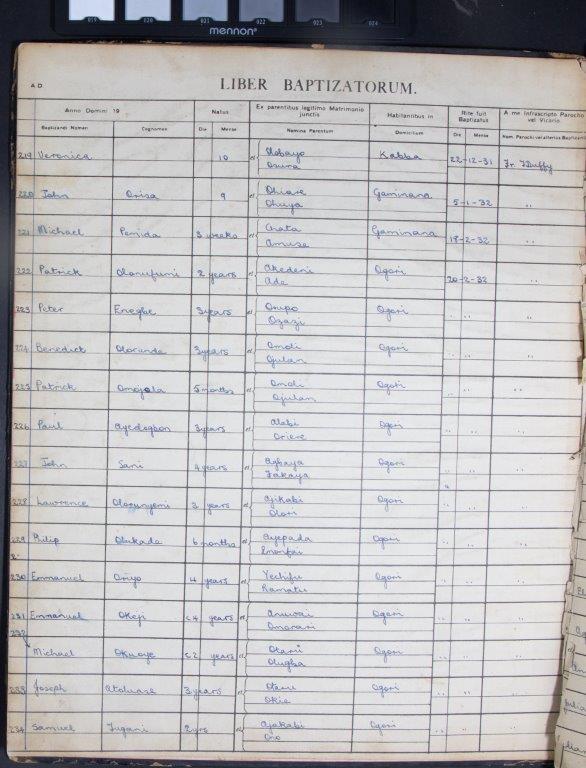 019 020 021 022 023 024
mennon
A.D
LIBER BAPTIZATORUM.
Anno Domini 19 Natus Ex parentibus legitimo Matrimonio junctis Habitantibus in Rite fuit Baptizatus A me Infrascripto Parocho vel Vicario
Baptizandi Nomen Cognomen Die Mense Nomina Parentum Domicilium Die Mense Nom. Parochi vel alterius Baptizantis
219 Veronica 10 et Olobayo Kabba 22-12-31 Fr. Duffy
Osura
220 John Orisa 9 et Ohiare Gaminana 5-1-32 "
Ohuya
221 Michael Penida 3 weeks et Onata Gaminana 18-2-32 "
Amusa
222 Patrick Olorufumi 2 years et Akedeni Ogori 20-2-32 "
Ade
223 Peter Enegbe 3 years et Orupo Ogori " " "
Ozazi
224 Benedict Olorunda 3 years et Omoli Ogori " " "
Ojulan
225 Patrick Omojola 5 months et Omoli Ogori " " "
Ojulan
226 Paul Ayedogbon 3 years et Alabi Ogori " " "
Oriere
227 John Sani 4 years et Agbaya Ogori " " "
Fakaya
228 Lawrence Olorunyomi 2 years et Ajikabi Ogori " " "
Olori
229 Philip Olukada 6 months et Ayepada Ogori " " "
230 Emmanuel Oriyo 4 years et Yechifu Ogori " " "
Ramatu
231 Emmanuel Okeji c 4 years et Anuwai Ogori " " "
Omorari
232
Michael Okuoye c 2 years et Otaru Ogori " " "
Olugba
233 Joseph Atoluase 3 years et Otaru Ogori " " "
Okie
234 Samuel Jugani 2 yrs et Ajakabi Ogori " " "
Oro